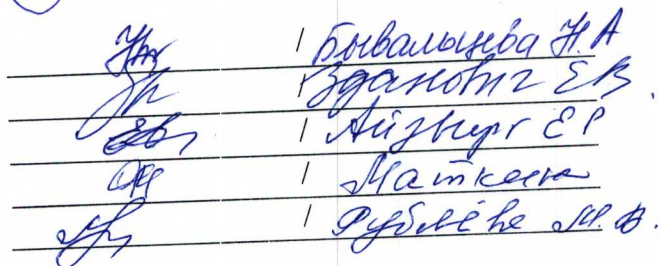 / Бывальцева Н.А
/ Зданович Е.В.
/ Айзвирг Е Р
/ Маткена
/ Рублёва М.В.